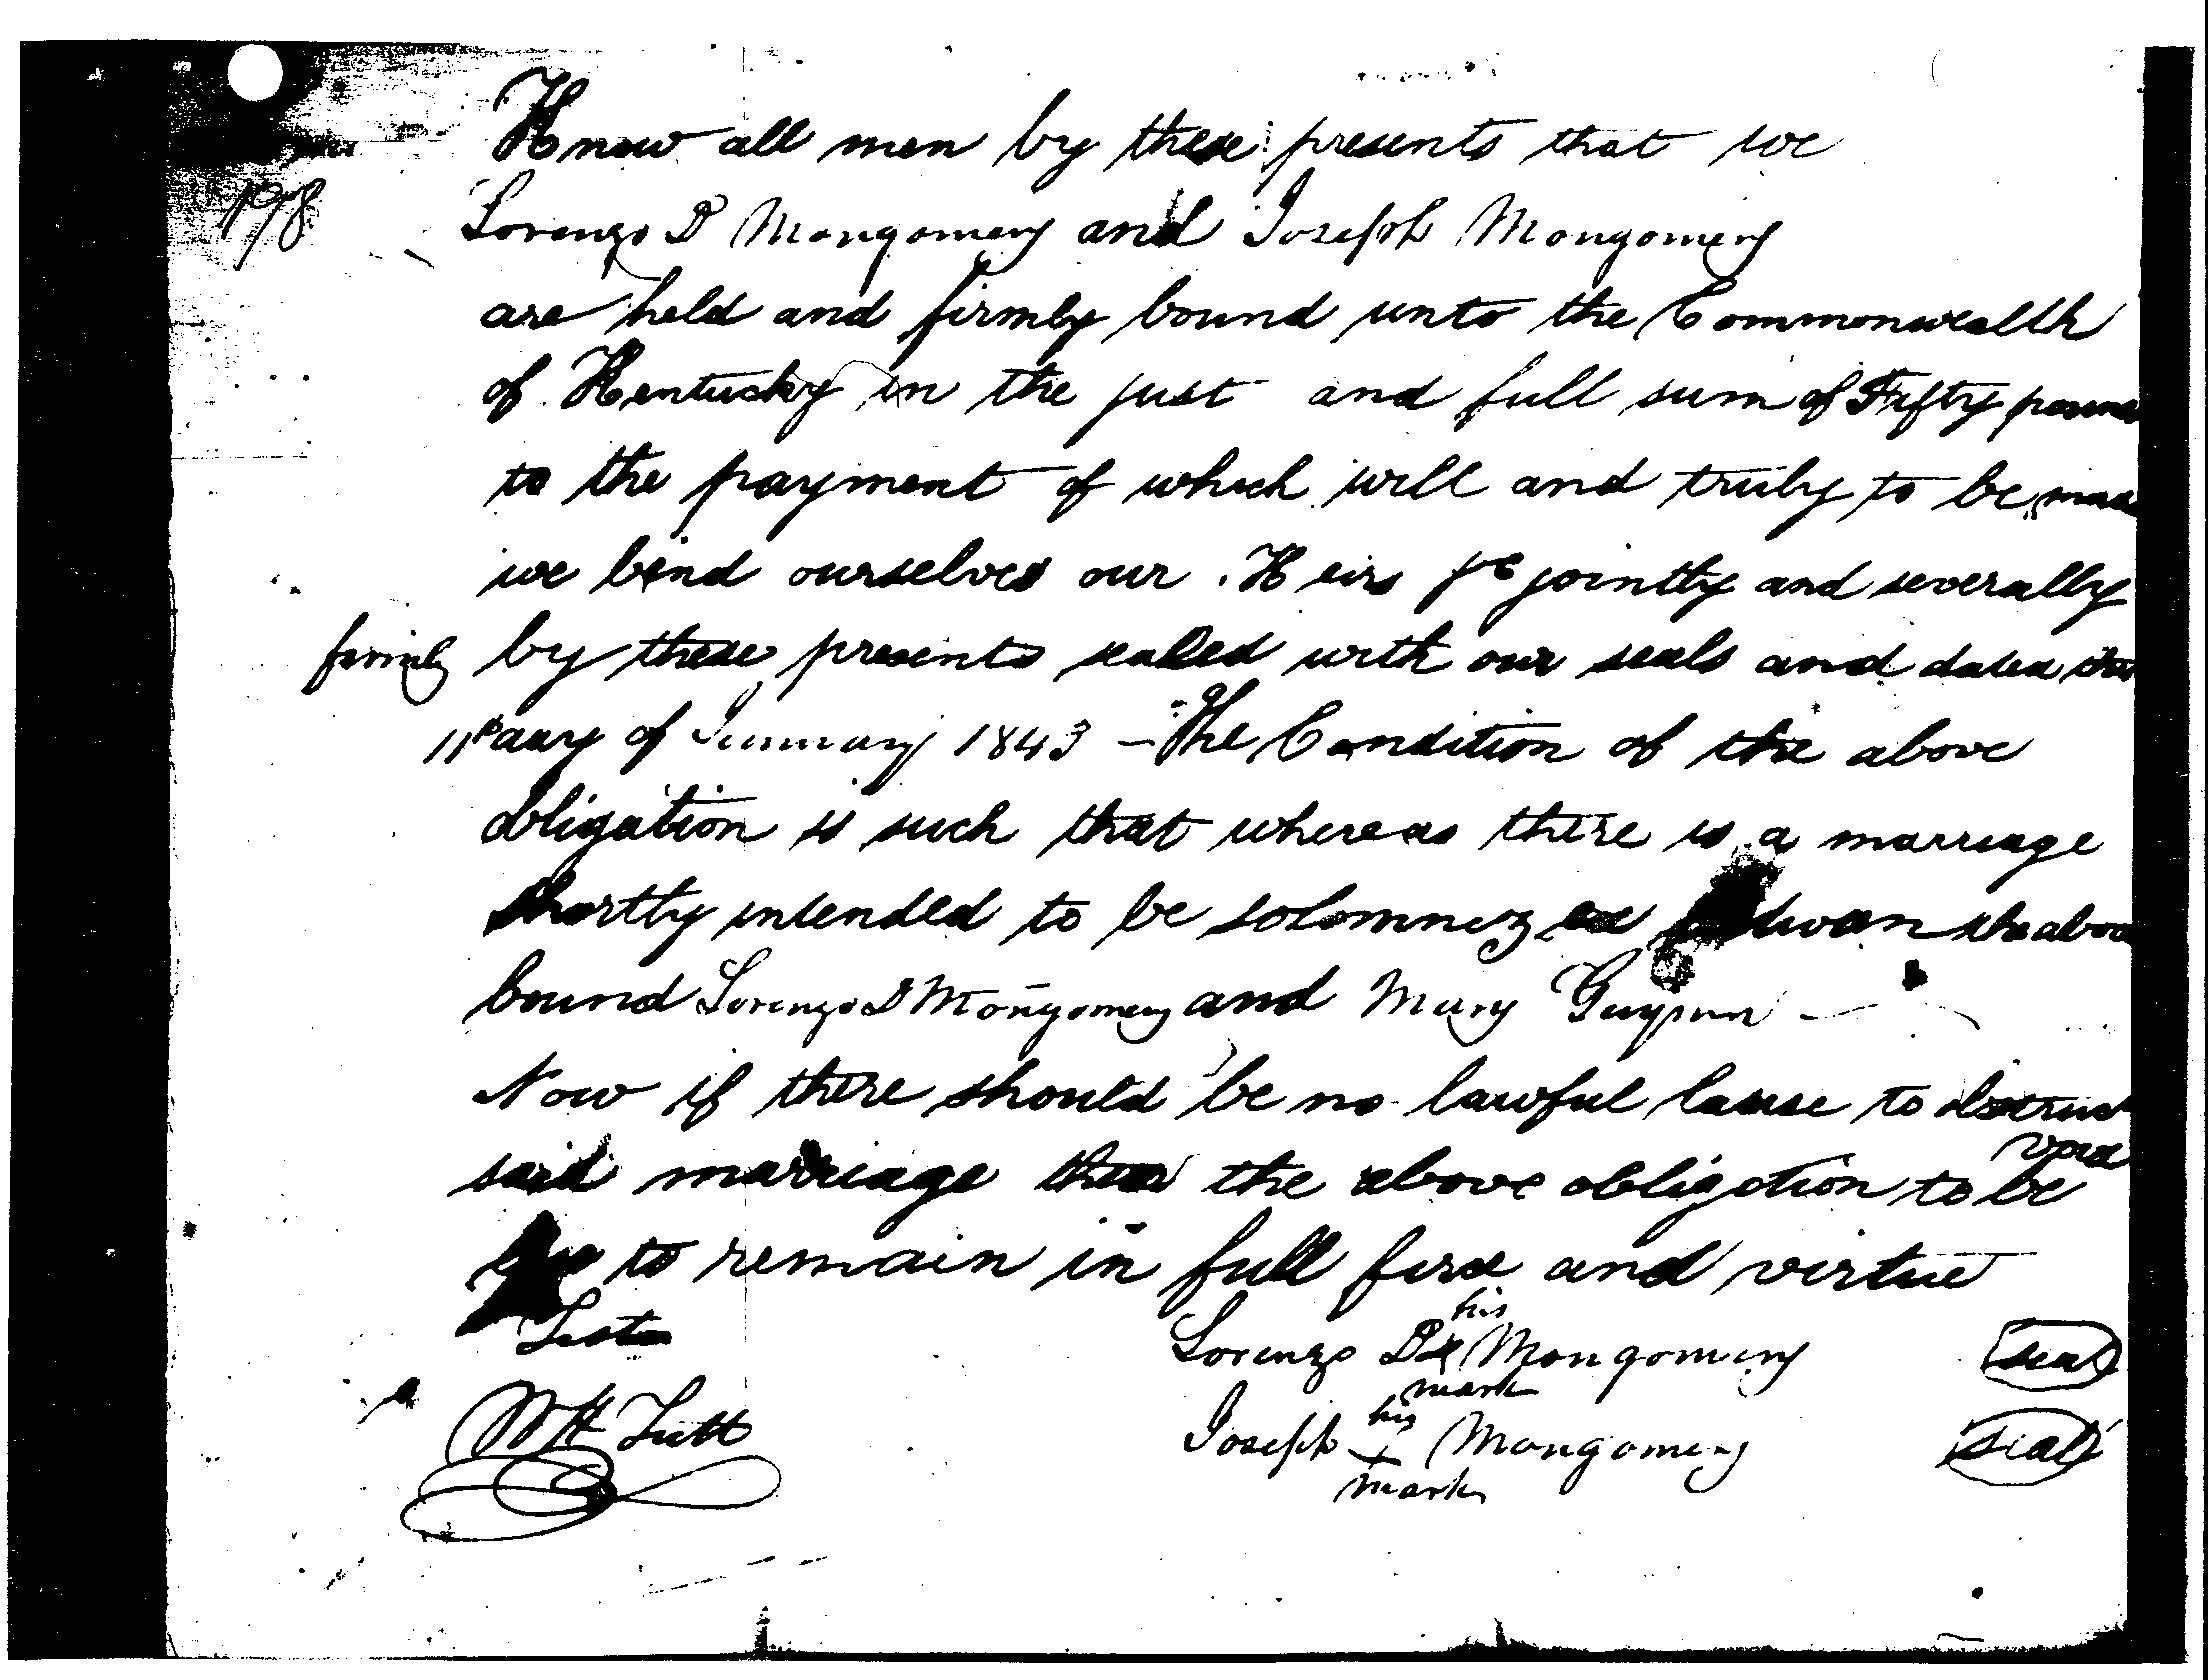 Know all men by these presents that we
198
Lorenzo D Mongomery and Joseph Mongomery
are held and firmly bound unto the Commonwealth
of Kentucky in the just and full sum of Fifty
to the payment of which will and truly to be
we bind ourselves our Heirs &c jointly and severally
firmly by these presents sealed with our seals and dated this
11th day of January 1843 – The Condition of the above
obligation is such that whereas there is a marriage
shortly intended to be solomnized the above
bound Lorenzo D Mongomery and Mary
Now if there should be no lawful cause to obstruct
said marriage then the above obligation to be void
to remain in full force and virtue
Teste
his
Lorenzo D x Mongomery seal
mark
his
W H Tutt Joseph + Mongomery seal
mark